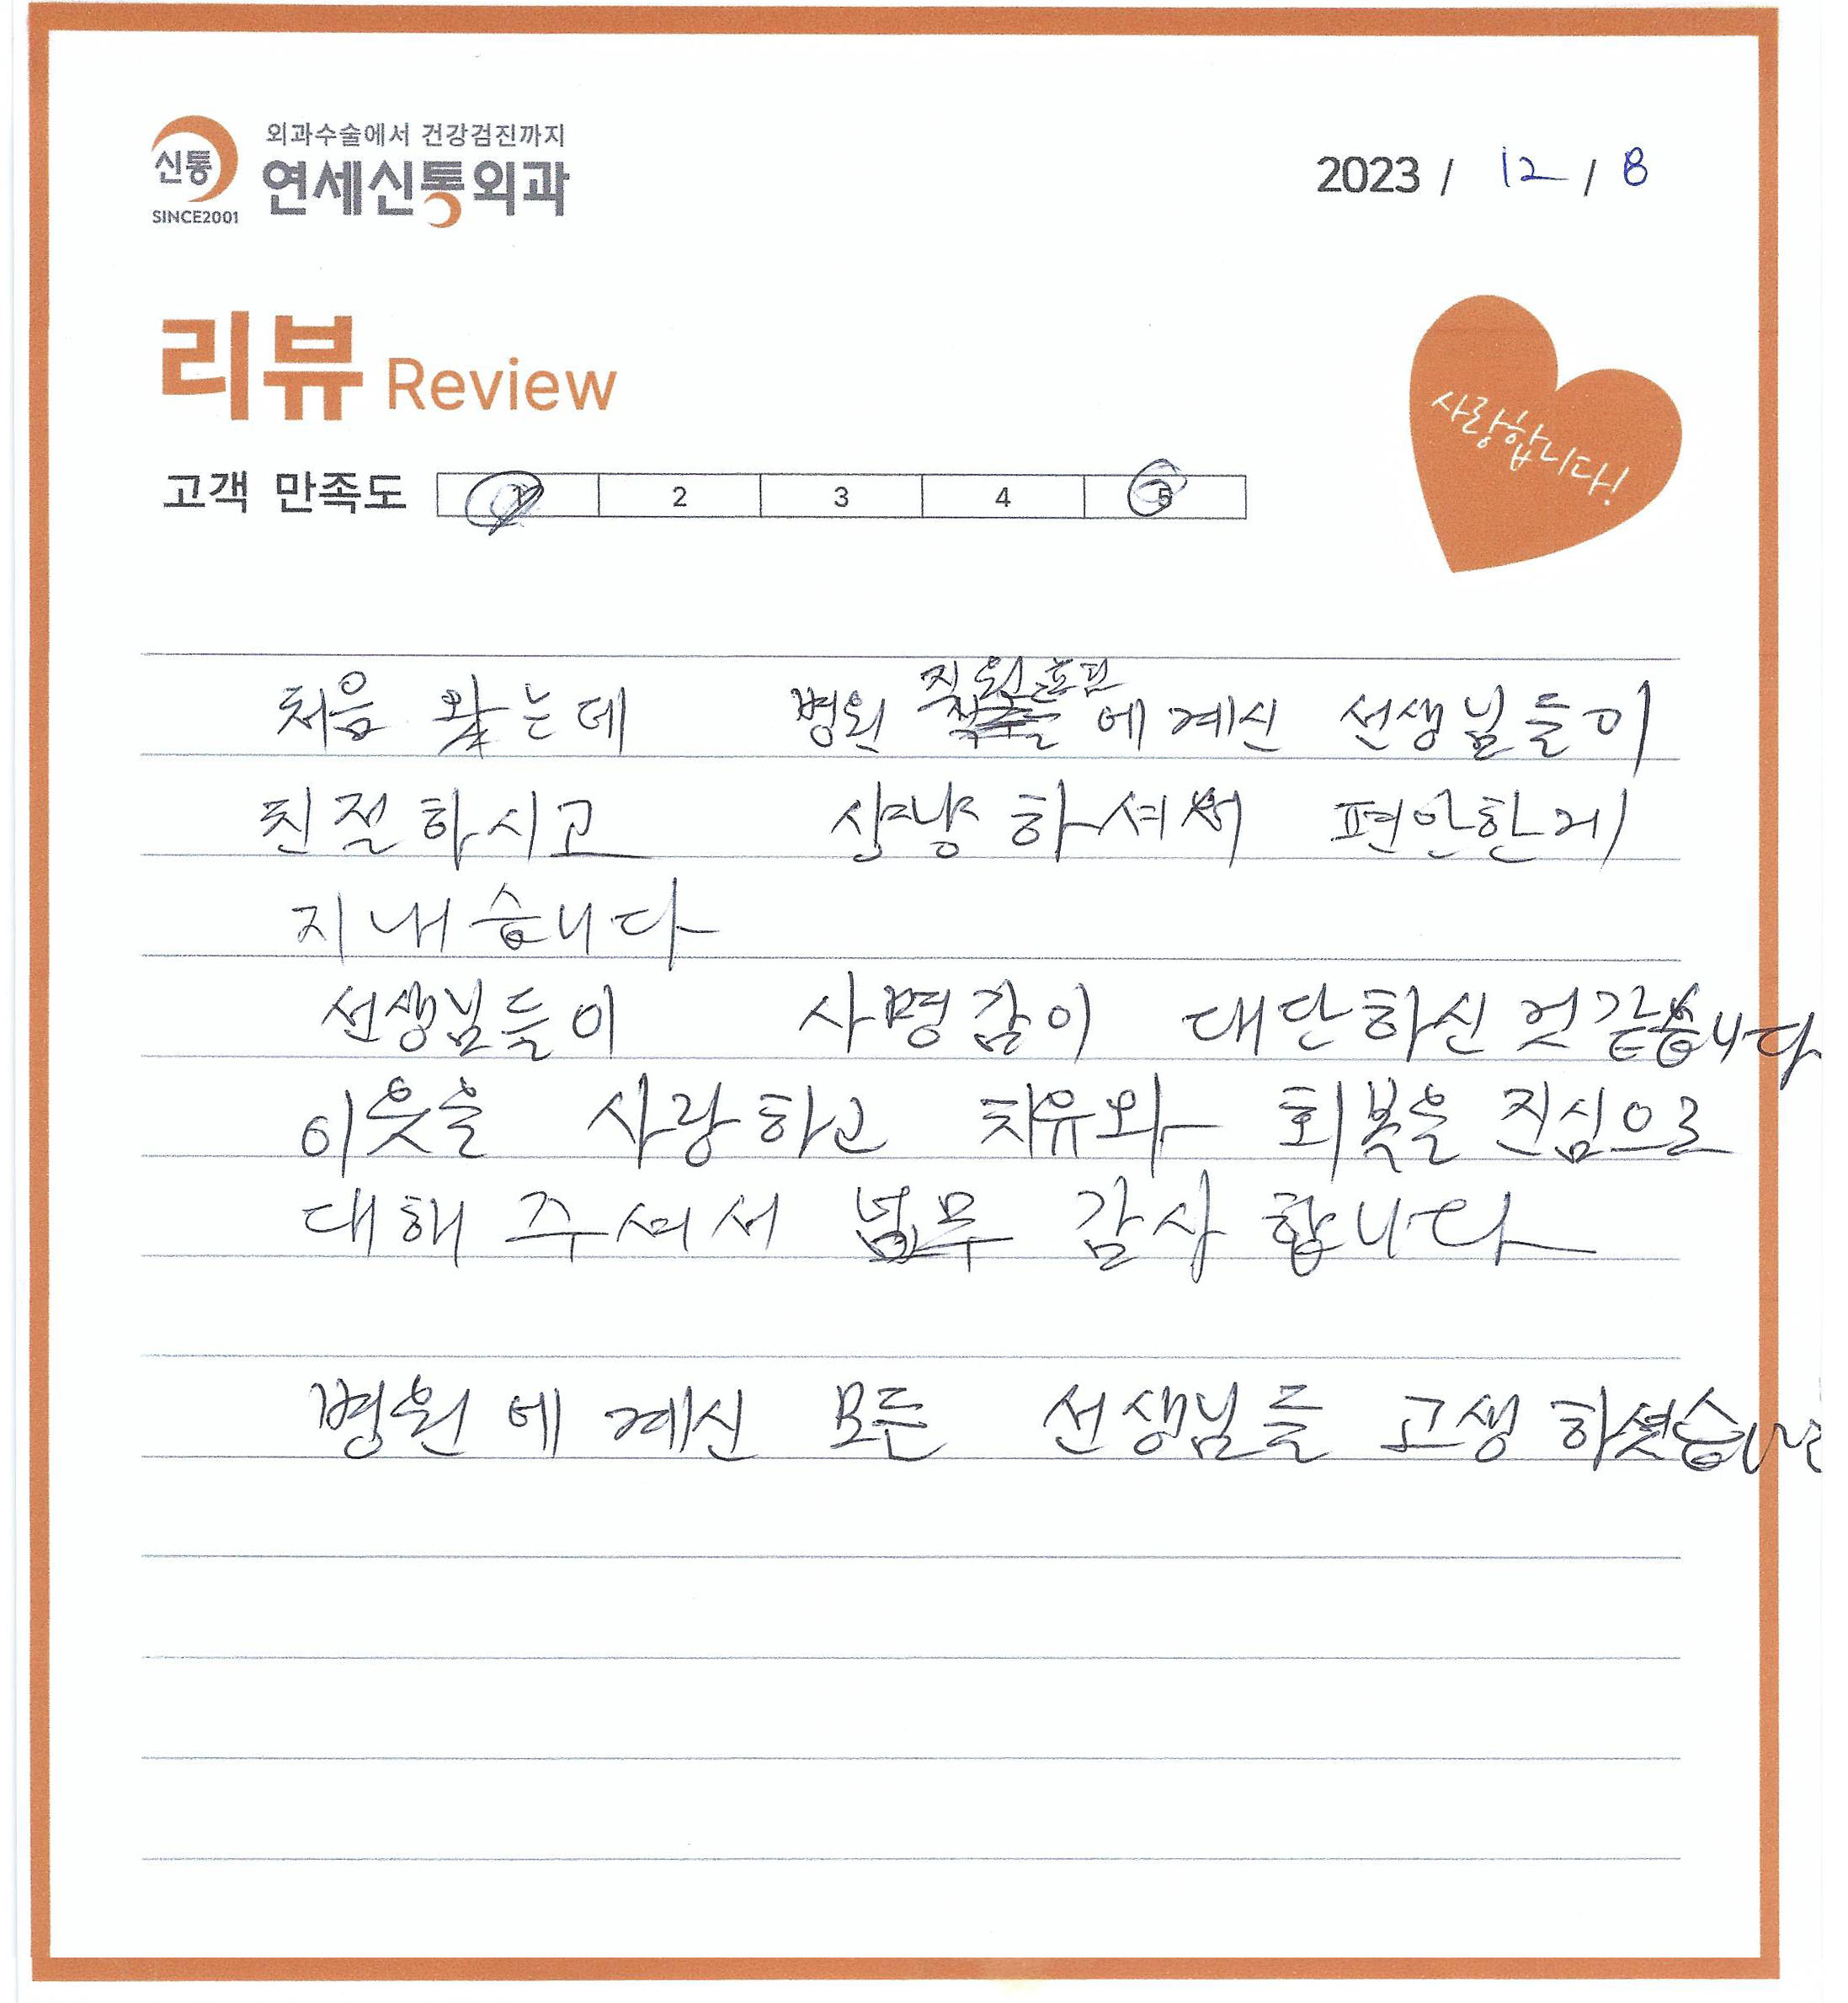 신통
SINCE2001
외과수술에서 건강검진까지
연세신통외과
2023 / 12 / 8
리뷰 Review
사랑합니다!
고객 만족도 1 2 3 4 5
직원
처음 왔는데 병원 에 계신 선생님들이
친절하시고 상냥하셔서 편안한게
지내습니다
선생님들이 사명감이 대단하신 것 같습니다
이웃을 사랑하고 치유와 회복을 진심으로
대해 주셔서 넘무 감사 합니다
병원에 계신 모든 선생님들 고생 하셨습니